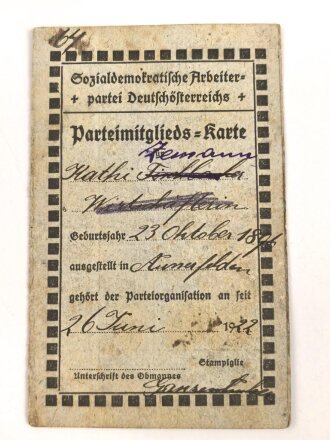 64
Sozialdemokratische Arbeiter-
+ partei Deutschösterreichs +
Parteimitglieds-Karte
Zemann
Kathi
Geburtsjahr 23 Oktober 18
ausgestellt in
gehört der Parteiorganisation an seit
26 Juni 1922
Stampiglie
Unterschrift des Obmannes